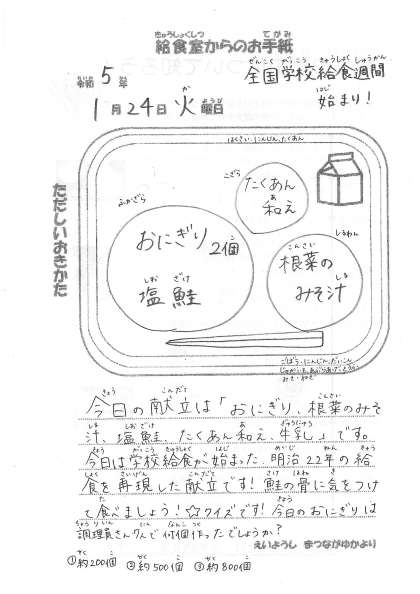 給食室からのお手紙
令和5年
1月24日火曜日
全国学校給食週間
始まり！
ただしいおきかた
はくさい、にんじん、たくあん
こざら
たくあん
和え
ふかざら
おにぎり2個
塩鮭
しるわん
根菜の
みそ汁
ごぼう、にんじん、だいこん
今日の献立は「おにぎり、根菜のみそ
汁、塩鮭、たくあん和え、牛乳」です。
今日は学校給食が始まった、明治22年の給
食を再現した献立です！鮭の骨に気をつけ
て食べましょう！☆クイズです！今日のおにぎりは
調理員さん7人で何個作ったでしょうか？
えいようし まつながゆかより
①約200個 ②約500個 ③約800個